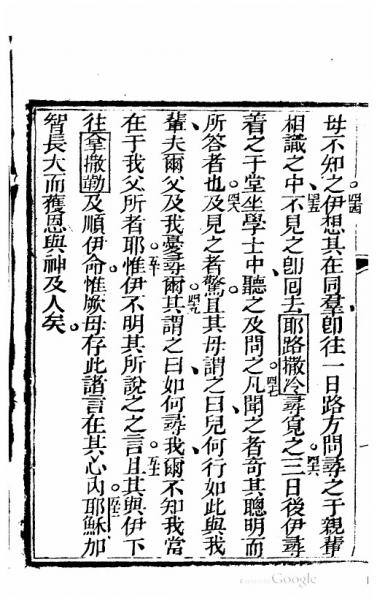 母不知之伊想其在同羣卽往一日路方問尋之于親輩
四四
相識之中不見之卽囘去耶路撒冷尋覓之三日後伊尋
四五
四六
着之于堂坐學士中聽之及問之凡聞之者奇其聰明而
四七
所答者也及見之者驚且其母謂之曰兒何行如此與我
四八
輩夫爾父及我憂尋爾其謂之曰如何尋我爾不知我當
四九
在于我父所者耶惟伊不明其所說之之言且其與伊下
五十
五一
往拿撒勒及順伊命惟厥母存此諸言在其心內耶穌加
五二
智長大而獲恩與神及人矣
Google